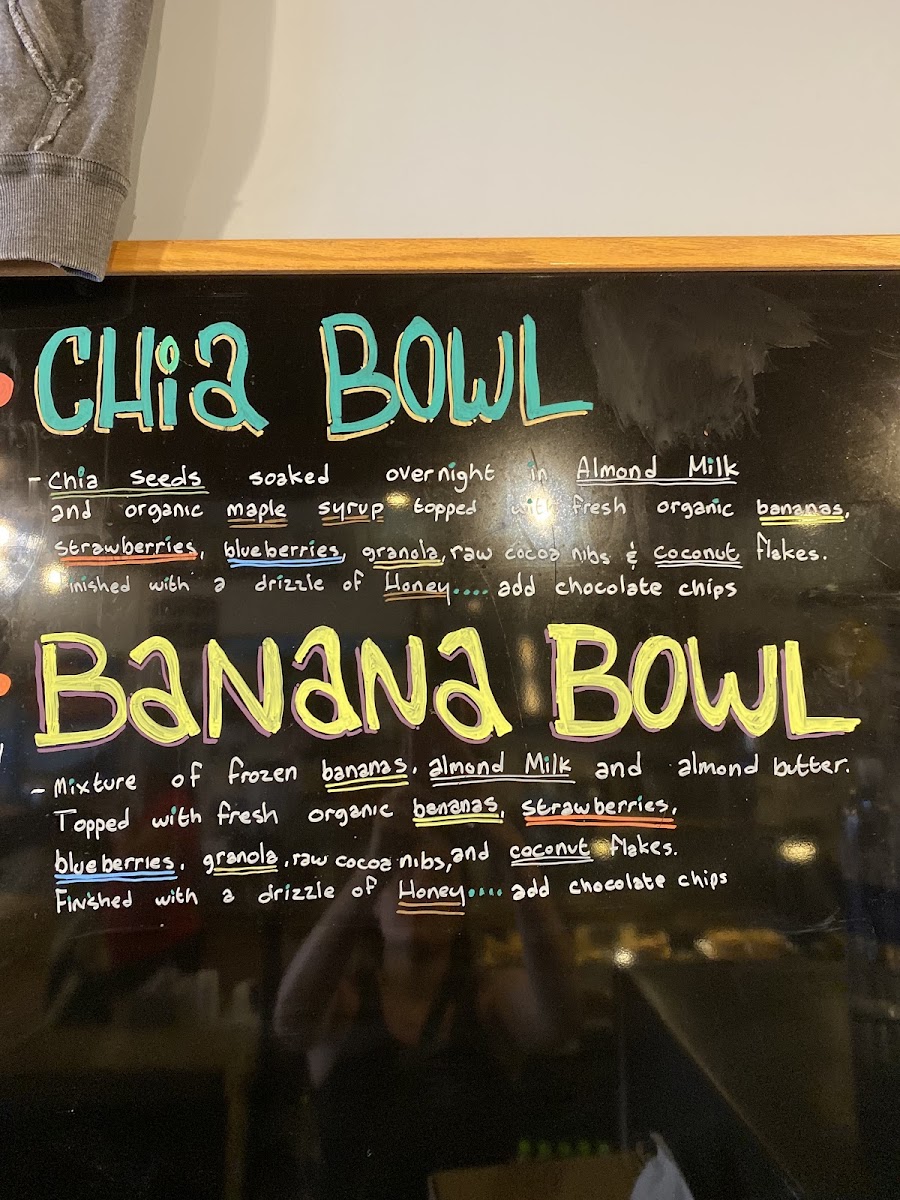 CHia BOWL
- Chia seeds soaked overnight in Almond Milk
and organic maple syrup topped with fresh organic bananas,
strawberries, blueberries, granola, raw cocoa nibs & coconut flakes.
Finished with a drizzle of Honey.... add chocolate chips
BaNaNa BOWL
- Mixture of frozen bananas, almond Milk and almond butter.
Topped with fresh organic bananas, strawberries,
blueberries, granola, raw cocoa nibs, and coconut flakes.
Finished with a drizzle of Honey.... add chocolate chips